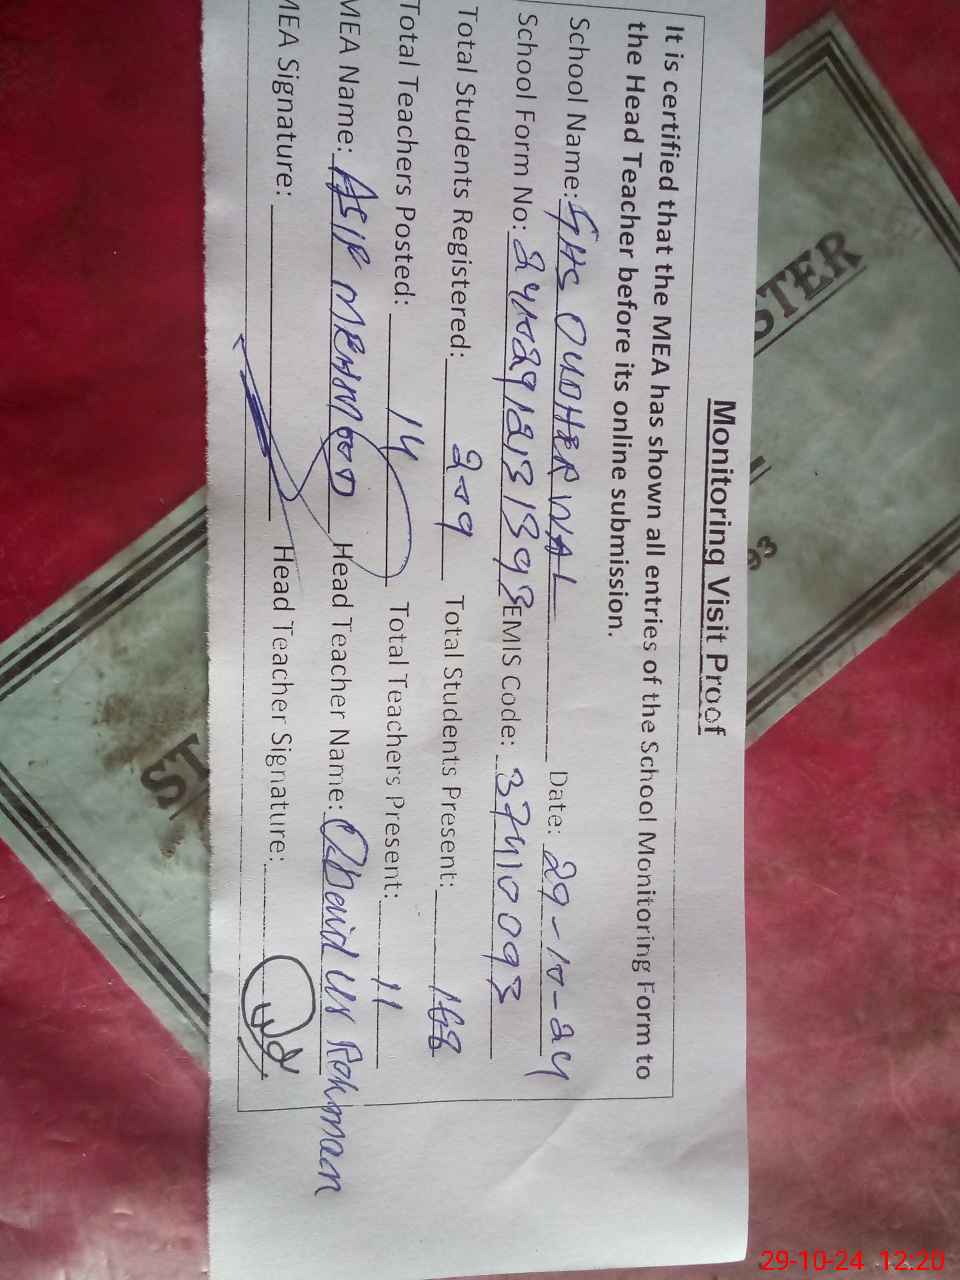 Monitoring Visit Proof
It is certified that the MEA has shown all entries of the School Monitoring Form to
the Head Teacher before its online submission.
School Name: GHS OUDHERWAL Date: 29-10-24
School Form No: EMIS Code: 37410093
Total Students Registered: 209 Total Students Present: 168
Total Teachers Posted: 14 Total Teachers Present: 11
MEA Name: ASIF MEHMOOD Head Teacher Name: Obaid Ur Rehman
MEA Signature: Head Teacher Signature:
STER
93
ST
29-10-24 12:20